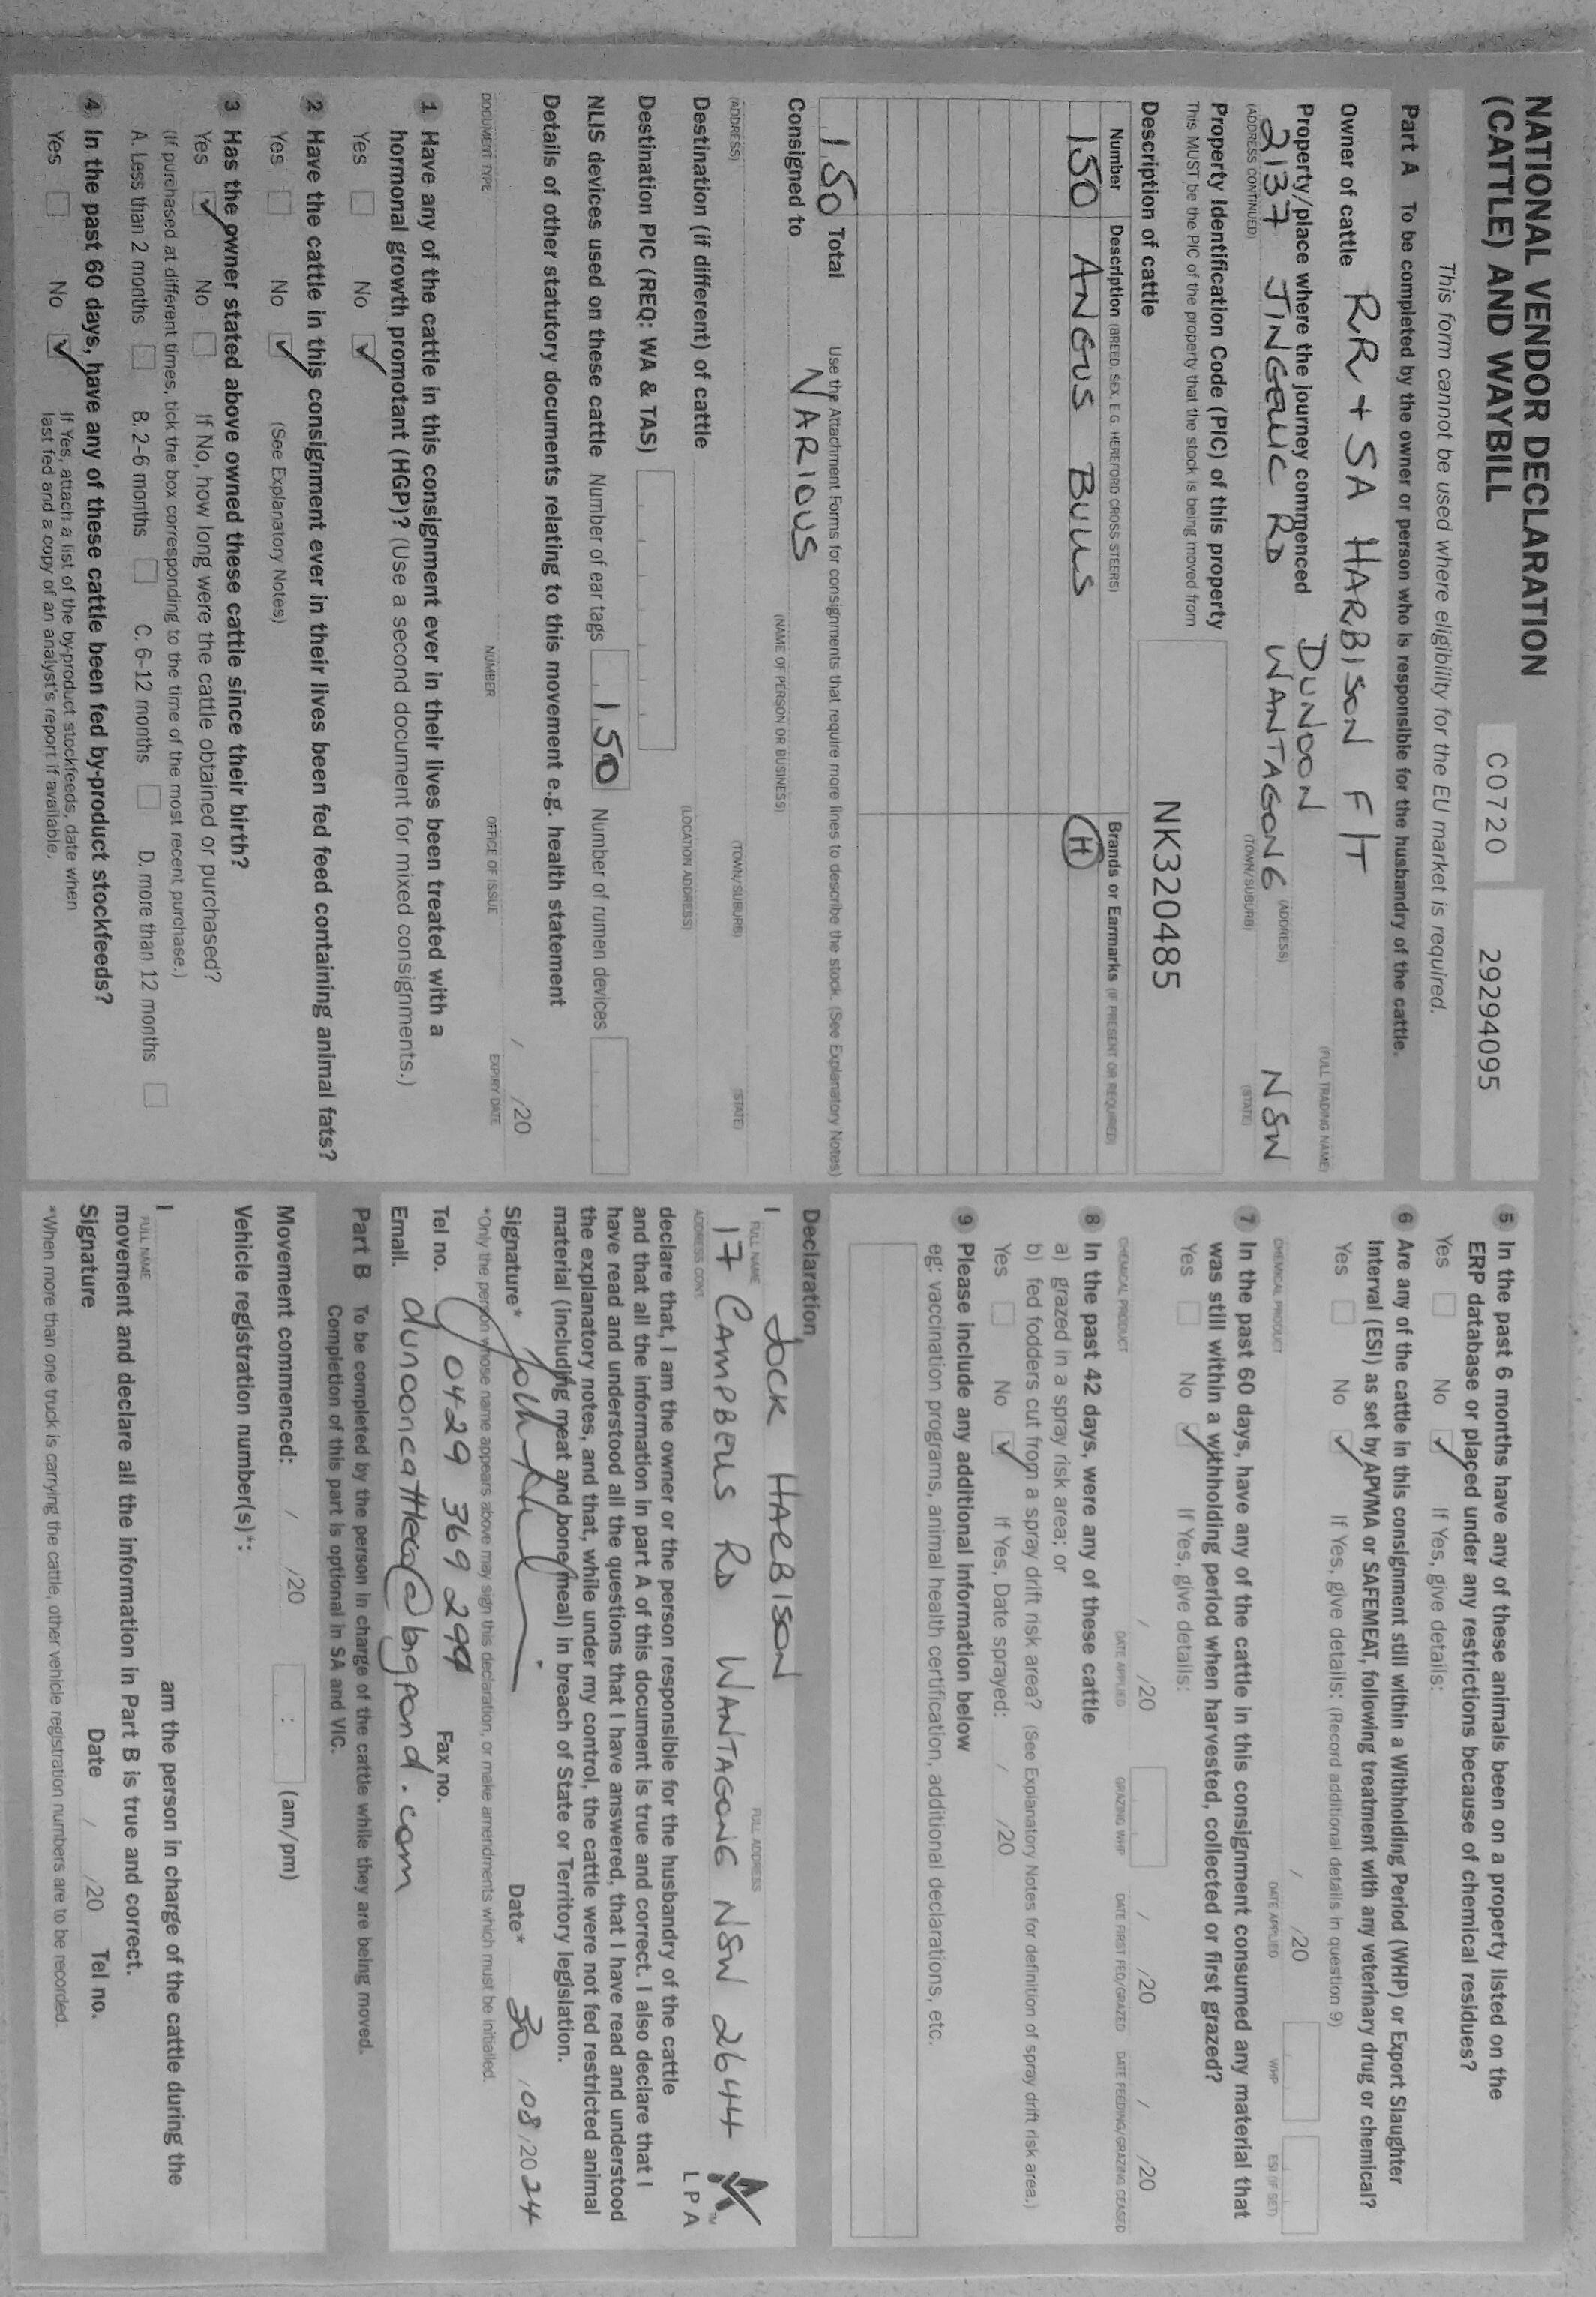 NATIONAL VENDOR DECLARATION
(CATTLE) AND WAYBILL
C0720 29294095
This form cannot be used where eligibility for the EU market is required.
Part A To be completed by the owner or person who is responsible for the husbandry of the cattle.
Owner of cattle RR + SA HARBISON F/T
(FULL TRADING NAME)
Property/place where the journey commenced DUNOON
(ADDRESS)
2137 JINGELLIC RD WANTAGONG NSW
(ADDRESS CONTINUED) (TOWN/SUBURB) (STATE)
Property Identification Code (PIC) of this property
This MUST be the PIC of the property that the stock is being moved from
NK320485
Description of cattle
Number Description (BREED, SEX, E.G. HEREFORD CROSS STEERS) Brands or Earmarks (IF PRESENT OR REQUIRED)
150 ANGUS BULLS H
150 Total Use the Attachment Forms for consignments that require more lines to describe the stock. (See Explanatory Notes)
Consigned to VARIOUS
(NAME OF PERSON OR BUSINESS)
(ADDRESS) (TOWN/SUBURB) (STATE)
Destination (if different) of cattle
(LOCATION ADDRESS)
Destination PIC (REQ: WA & TAS)
NLIS devices used on these cattle Number of ear tags 150 Number of rumen devices
Details of other statutory documents relating to this movement e.g. health statement
/ /20
DOCUMENT TYPE NUMBER OFFICE OF ISSUE EXPIRY DATE
1 Have any of the cattle in this consignment ever in their lives been treated with a
hormonal growth promotant (HGP)? (Use a second document for mixed consignments.)
Yes No ✓
2 Have the cattle in this consignment ever in their lives been fed feed containing animal fats?
Yes No ✓ (See Explanatory Notes)
3 Has the owner stated above owned these cattle since their birth?
Yes ✓ No If No, how long were the cattle obtained or purchased?
(If purchased at different times, tick the box corresponding to the time of the most recent purchase.)
A. Less than 2 months B. 2-6 months C. 6-12 months D. more than 12 months
4 In the past 60 days, have any of these cattle been fed by-product stockfeeds?
Yes No ✓ If Yes, attach a list of the by-product stockfeeds, date when
last fed and a copy of an analyst's report if available.
5 In the past 6 months have any of these animals been on a property listed on the
ERP database or placed under any restrictions because of chemical residues?
Yes No ✓ If Yes, give details:
6 Are any of the cattle in this consignment still within a Withholding Period (WHP) or Export Slaughter
Interval (ESI) as set by APVMA or SAFEMEAT, following treatment with any veterinary drug or chemical?
Yes No ✓ If Yes, give details: (Record additional details in question 9)
/ /20
CHEMICAL PRODUCT DATE APPLIED WHP ESI (IF SET)
7 In the past 60 days, have any of the cattle in this consignment consumed any material that
was still within a withholding period when harvested, collected or first grazed?
Yes No ✓ If Yes, give details:
/ /20 / /20 / /20
CHEMICAL PRODUCT DATE APPLIED GRAZING WHP DATE FIRST FED/GRAZED DATE FEEDING/GRAZING CEASED
8 In the past 42 days, were any of these cattle
a) grazed in a spray risk area; or
b) fed fodders cut from a spray drift risk area? (See Explanatory Notes for definition of spray drift risk area.)
Yes No ✓ If Yes, Date sprayed: / /20
9 Please include any additional information below
eg: vaccination programs, animal health certification, additional declarations, etc.
Declaration
I JOCK HARBISON
FULL NAME FULL ADDRESS
17 CAMPBELLS RD WANTAGONG NSW 2644
ADDRESS CONT.
LPA
declare that, I am the owner or the person responsible for the husbandry of the cattle
and that all the information in part A of this document is true and correct. I also declare that I
have read and understood all the questions that I have answered, that I have read and understood
the explanatory notes, and that, while under my control, the cattle were not fed restricted animal
material (including meat and bone meal) in breach of State or Territory legislation.
Signature* Date* 30/08/2024
*Only the person whose name appears above may sign this declaration, or make amendments which must be initialled.
Tel no. 0429 369 299 Fax no.
Email. dunooncattleco@bigpond.com
Part B To be completed by the person in charge of the cattle while they are being moved.
Completion of this part is optional in SA and VIC.
Movement commenced: / /20 : (am/pm)
Vehicle registration number(s)*:
I am the person in charge of the cattle during the
FULL NAME
movement and declare all the information in Part B is true and correct.
Signature Date / /20 Tel no.
*When more than one truck is carrying the cattle, other vehicle registration numbers are to be recorded.